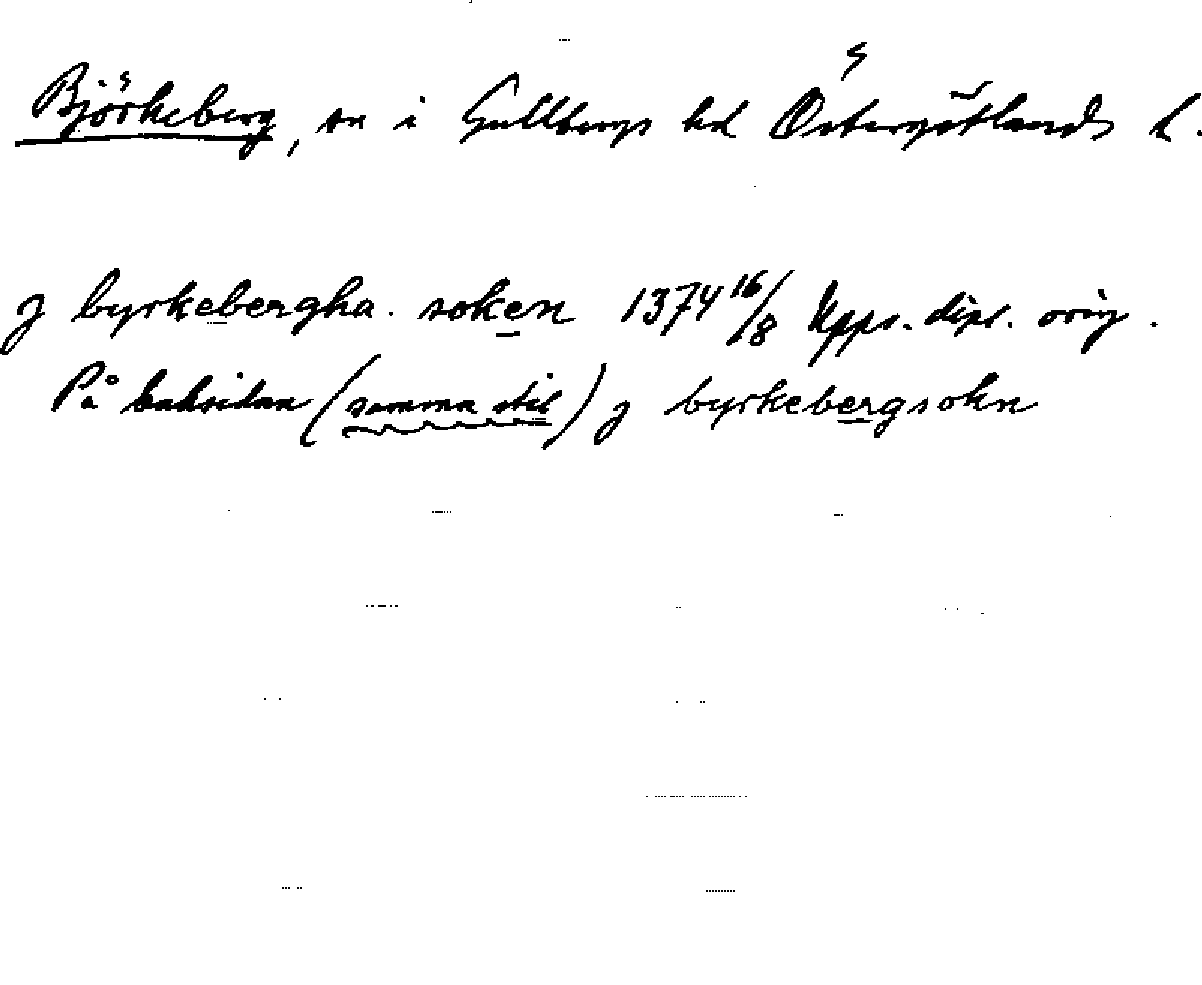 Björkeberg, sn i Gullbergs hd Östergötlands l.
j byrkebergha. soken 1374 16/8 Upps. dipl. orig.
På baksidan (samma stil) j byrkebergsokn